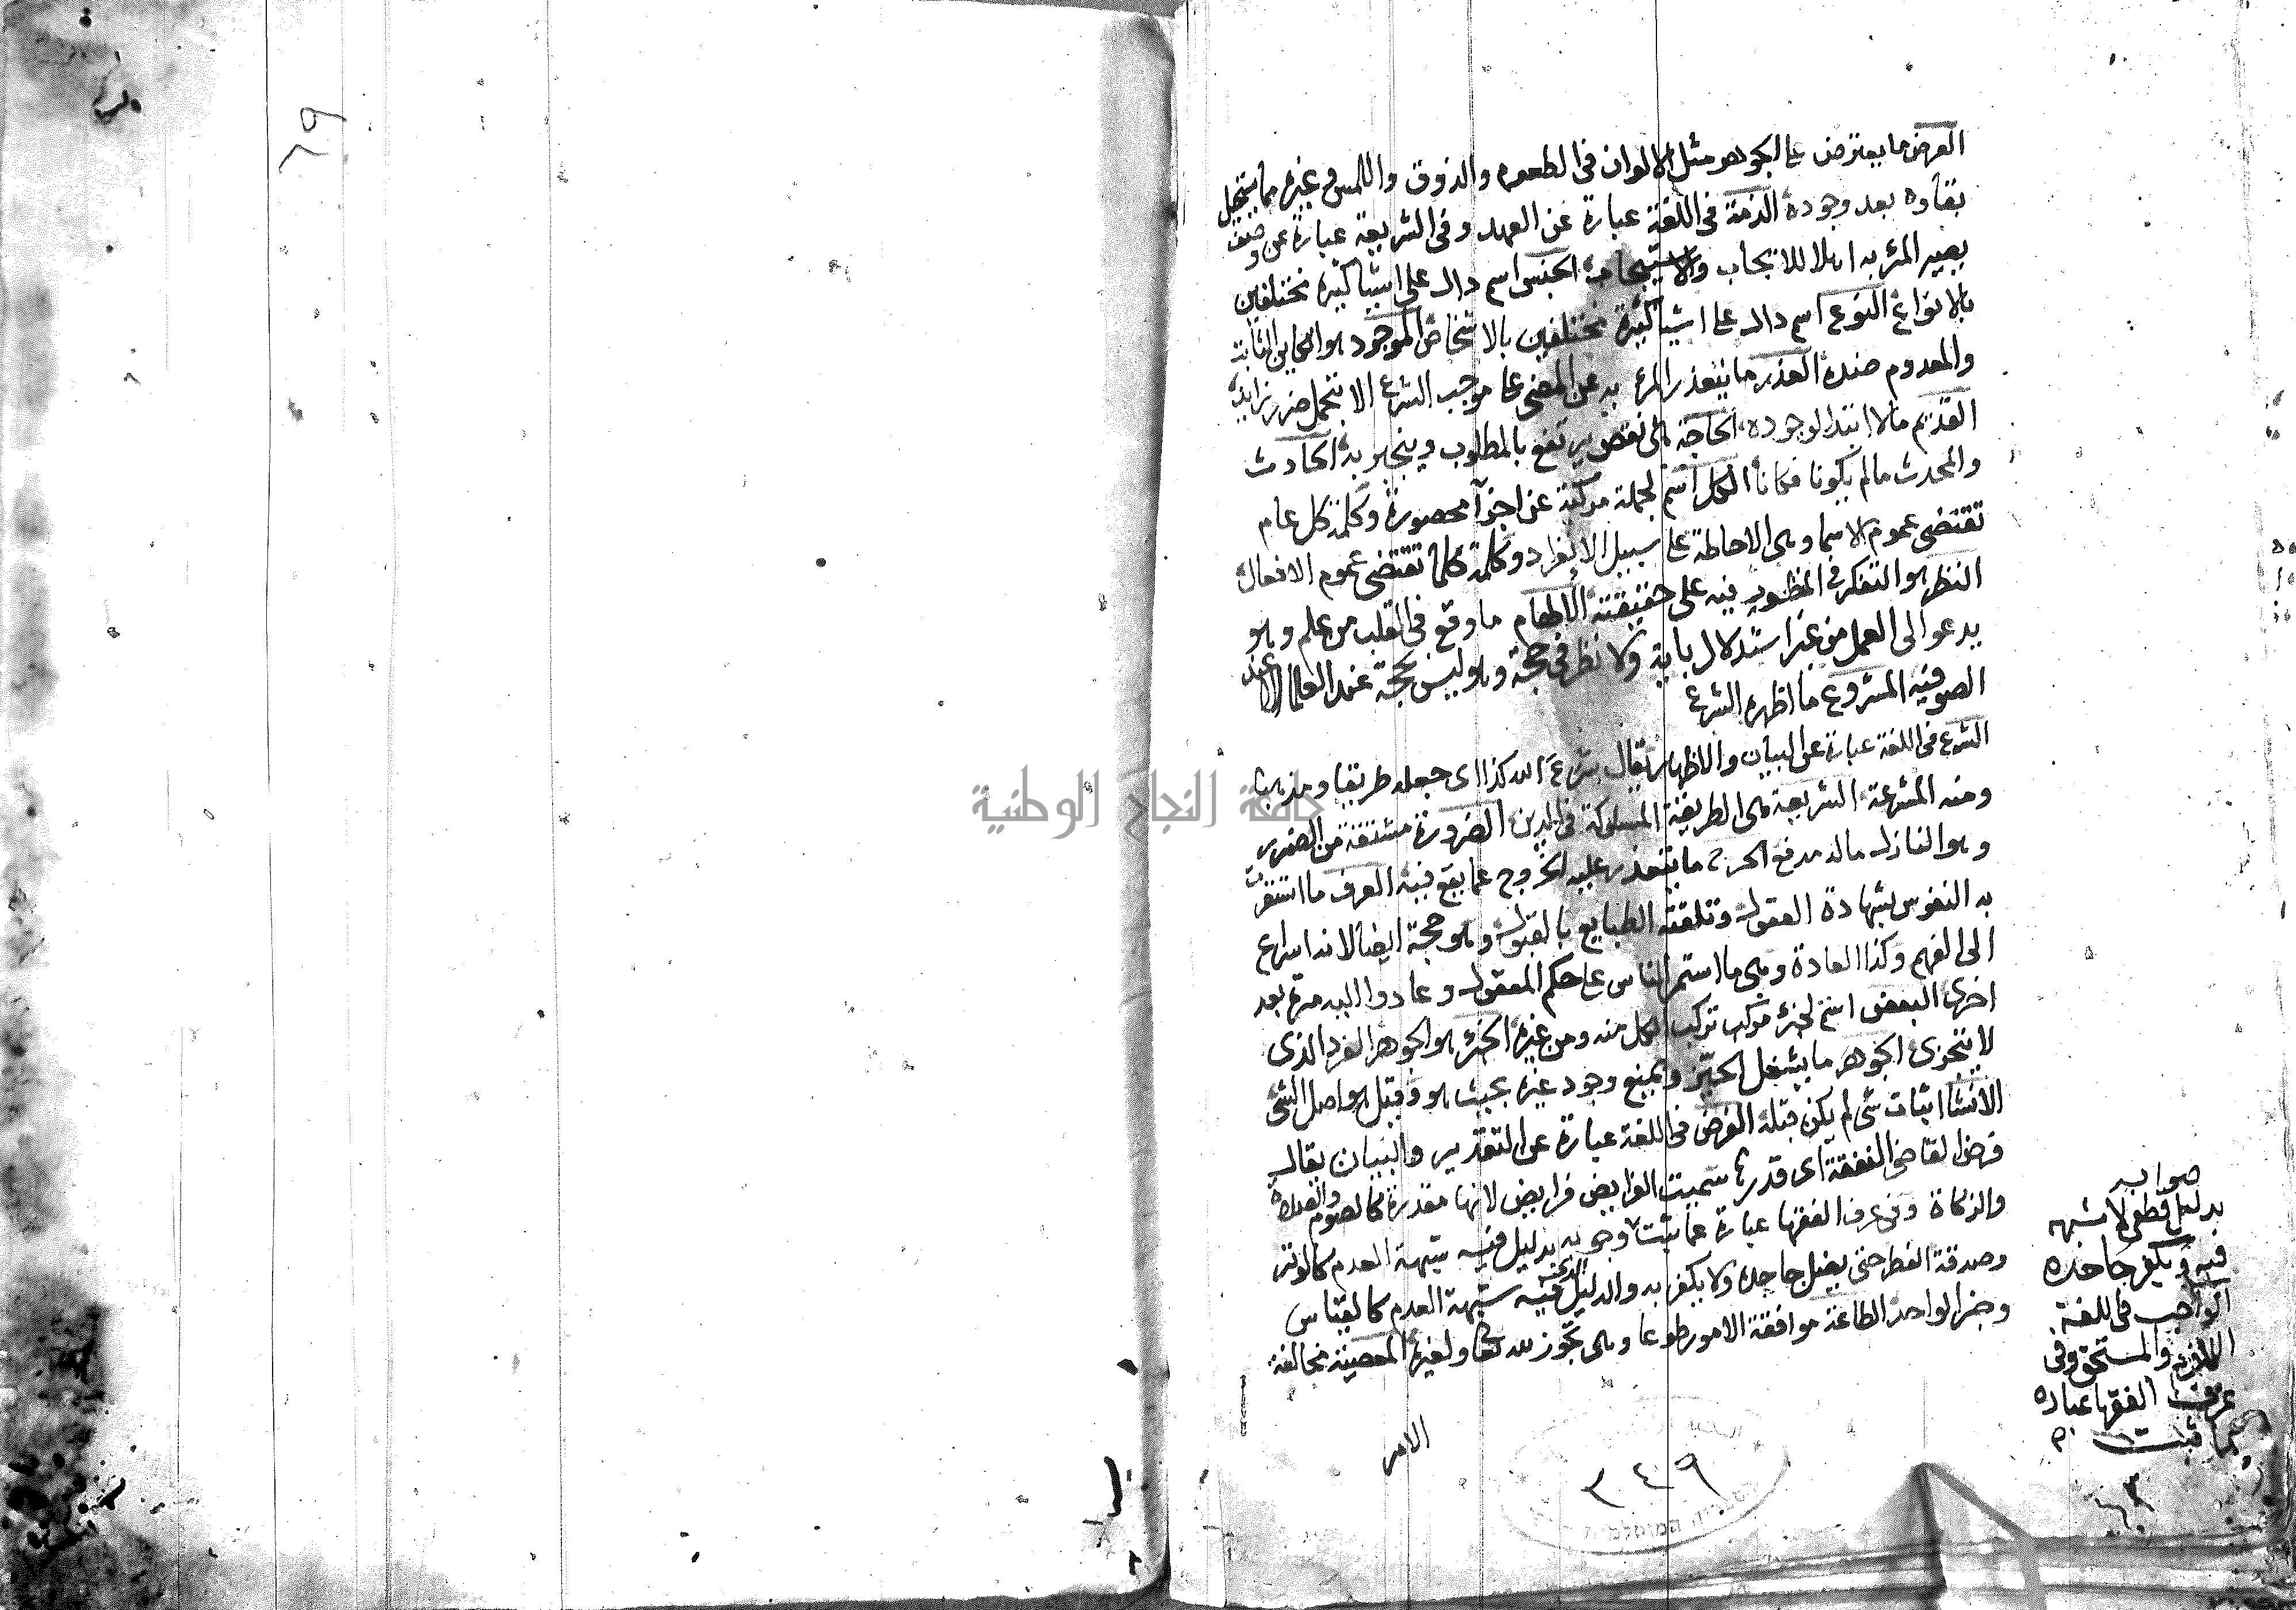 العرض ما يعترض على الجوهر مثل الالوان فى الطعوم والذوق واللمس وغيره مما يستحيل
بقاوه بعد وجوده الذمة فى اللغة عبارة عن العهد وفى الشريعة عبارة عن وصف
يصير المرء به اهلا للايجاب والاستيجاب الجنس اسم دال على اشيا كثيره مختلفين
بالانواع النوع اسم دال على اشيا كثيرة مختلفين بالاشخاص الموجود هو الكاين الثابت
والمعدوم ضده العذر ما يتعذر المرء به عن المضى على موجب الشرع الا بتحمل ضرر زايد
القديم مالا ابتدا لوجوده الحاجة هى نقص يرتفع بالمطلوب وينجبر به الحادث
والمحدث مالم يكونا فكانا الكل اسم لجملة مركبة عن اجزآ محصورة وكلمة كل عام
تقتضى عموم الاسما وهى الاحاطة على سبيل الانفراد وكلمة كلما تقتضى عموم الافعال
النظر هو التفكر فى المنظور فيه على حقيقته الالهام ما وقع فى القلب من علم وهو
يدعو الى العمل من غير استدلال باية ولا نظر فى حجة وهو ليس بحجة عند العلما الا عند
الصوفيه المشروع ما اظهره الشرع
الشرع فى اللغة عبارة عن البيان والاظهار يقال شرع الله كذا اى جعله طريقا ومذهبا
ومنه المشرعة الشريعة هى الطريقة المسلوكة فى الدين الضرورة مشتقة من الضرر
وهو النازل مالا مدفع له الحرج ما يتعذر عليه الخروج عما يقع فيه العرف ما استقرت
به النفوس بشهادة العقول وتلقته الطبايع بالقبول وهو حجة ايضا لانه اسرع
الى الفهم وكذا العادة وهى ما استمر الناس على حكم المعقول وعادوا اليه مرة بعد
اخرى البعض اسم لجزء مركب تركب الكل منه ومن غيره الجزء هو الجوهر الفرد الذى
لا يتجزى الجوهر ما يشغل الحيز ويمنع وجود غيره بحيث هو وقيل هو اصل الشى
الانشا اثبات شى لم يكن قبله الفرض فى اللغة عبارة عن التقدير والبيان يقال
فرض القاضى النفقة اى قدرها سميت الفرايض فرايض لانها مقدرة كالصوم والصلاة
والزكاة وفى عرف الفقها عبارة عما يثبت وجوبه بدليل فيه شبهة العدم كالوتر
وصدقة الفطر حتى يضل جاحده ولا يكفر به والدليل الذى فيه شبهة العدم كالقياس
وخبر الواحد الطاعة موافقة الامور طوعا وهى تجوز لله تعالى ولغيره المعصية مخالفة
الامر
صوابه
بدليل قطعى لا شبهه
فيه ويكفر جاحده
الواجب فى اللغة
اللازم والمستحق وفى
عرف الفقها عباره
عما ثبت
٢٤٩
٦٩
جامعة النجاح الوطنية